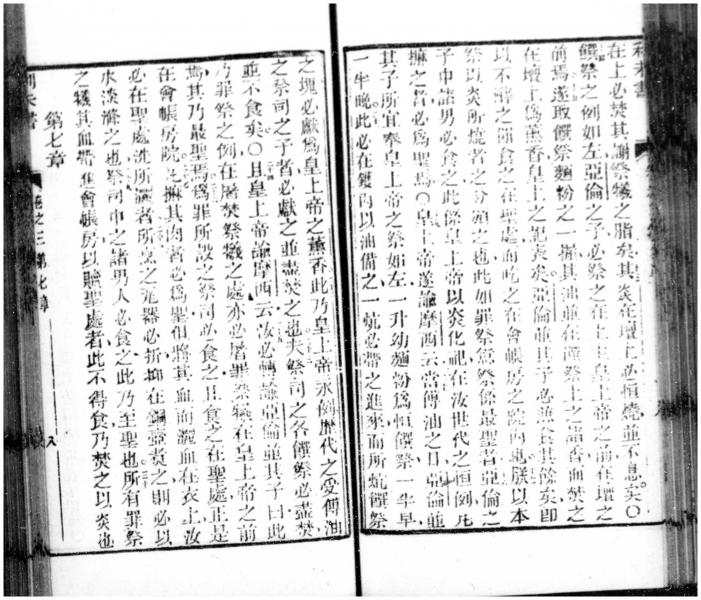 在上必焚其謝祭犧之脂矣其炎在壇上必恒燒並不息矣○
饌祭之例如左亞倫之子必祭之在上主皇上帝之前在壇之
前焉遂取饌祭麵粉之一揸其油並在饌祭上之諸香而焚之
在壇上爲薰香皇上之記矣亞倫並其子必兼食其餘矣卽
以不酵之餅食之在聖處而吃之在會帳房之院內也朕以本
祭以炎所燒者之分給之也此如罪祭愆祭係最聖者亞倫之
子中諸男必食之此係皇上帝以炎化祀在汝世代之恒例凡
摭之者必爲聖焉○皇上帝遂諭摩西云當傅油之日亞倫並
其子所宜奉皇上帝之祭如左一升幼麵粉爲恒饌祭一半早
一半晚此必在鑊內以油備之一烘必帶之進來而所炕饌祭
之塊必獻爲皇上帝之薰香此乃皇上帝永例歷代之受傅油
之祭司之子者必獻之並盡焚之也夫祭司之各饌祭必盡焚
並不食矣○且皇上帝諭摩西云汝必轉諭亞倫並其子曰此
乃罪祭之例在屠焚祭犧之處亦必屠罪祭犧在皇上帝之前
焉其乃最聖焉爲罪所設之祭司必食之且食之在聖處正是
在會帳房院也摭其肉者必爲聖但將其血而灑血在衣上汝
必在聖處洗所灑者所烹之瓦器必折抑在銅壺煑之則必以
水淡滌之也祭司中之諸男人必食之此乃至聖也所有罪祭
之犧其血帶進會帳房以贖聖處者此不得食乃焚之以炎也
第七章
利未書 卷之三 第七章